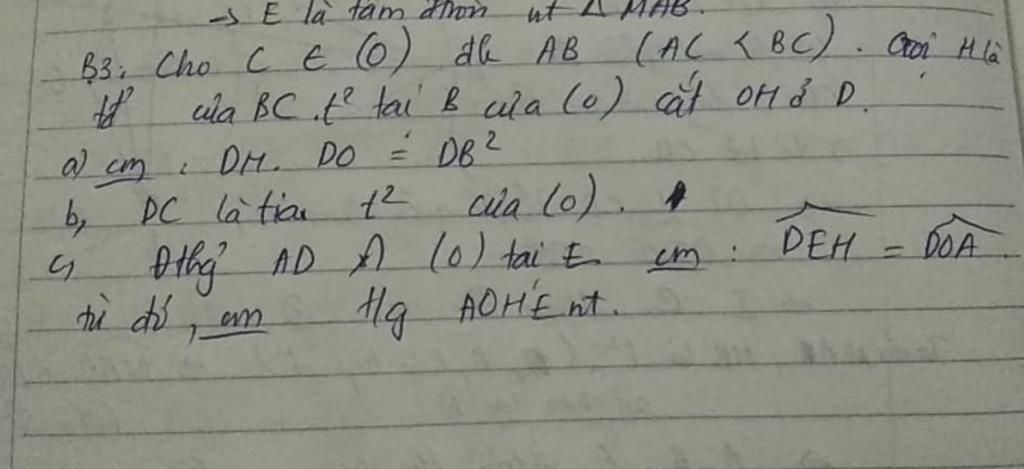 → E là tâm đtròn nt Δ MAB.
B3: Cho C ∈ (O) đk AB (AC < BC). Gọi H là
tđ² của BC. t² tại B của (O) cắt OH ở D.
a) cm : DH. DO = DB²
b, DC là tiếp t² của (O).
c, Đthg² AD ∩ (O) tại E cm : DEH = DOA.
từ đó, cm Hg AOHE nt.